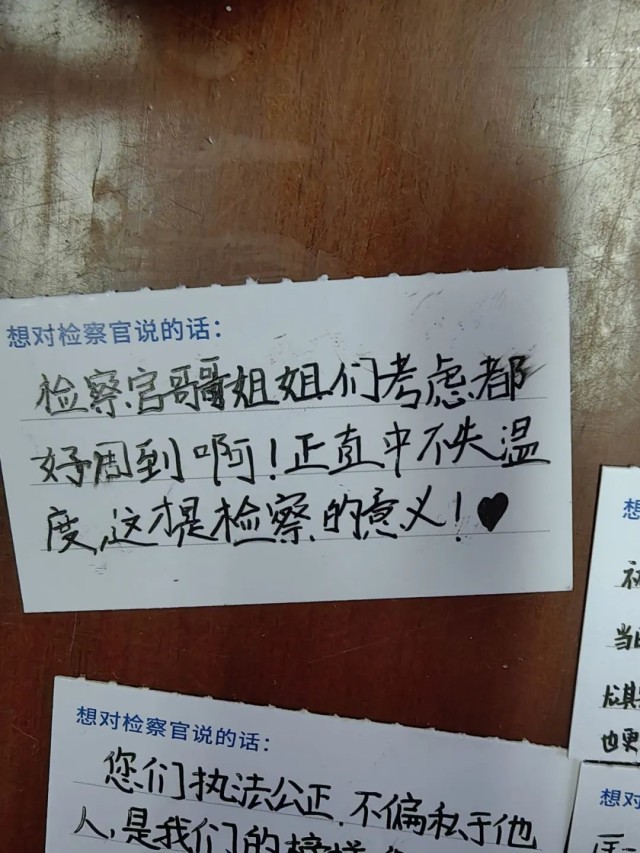 想对检察官说的话：
检察官哥哥姐姐们考虑都
好周到啊！正直中不失温
度，这才是检察的意义！♥
想对检察官说的话：
您们执法公正，不偏私于他
人，是我们的榜样
想
初
当
尤其
也更
想对